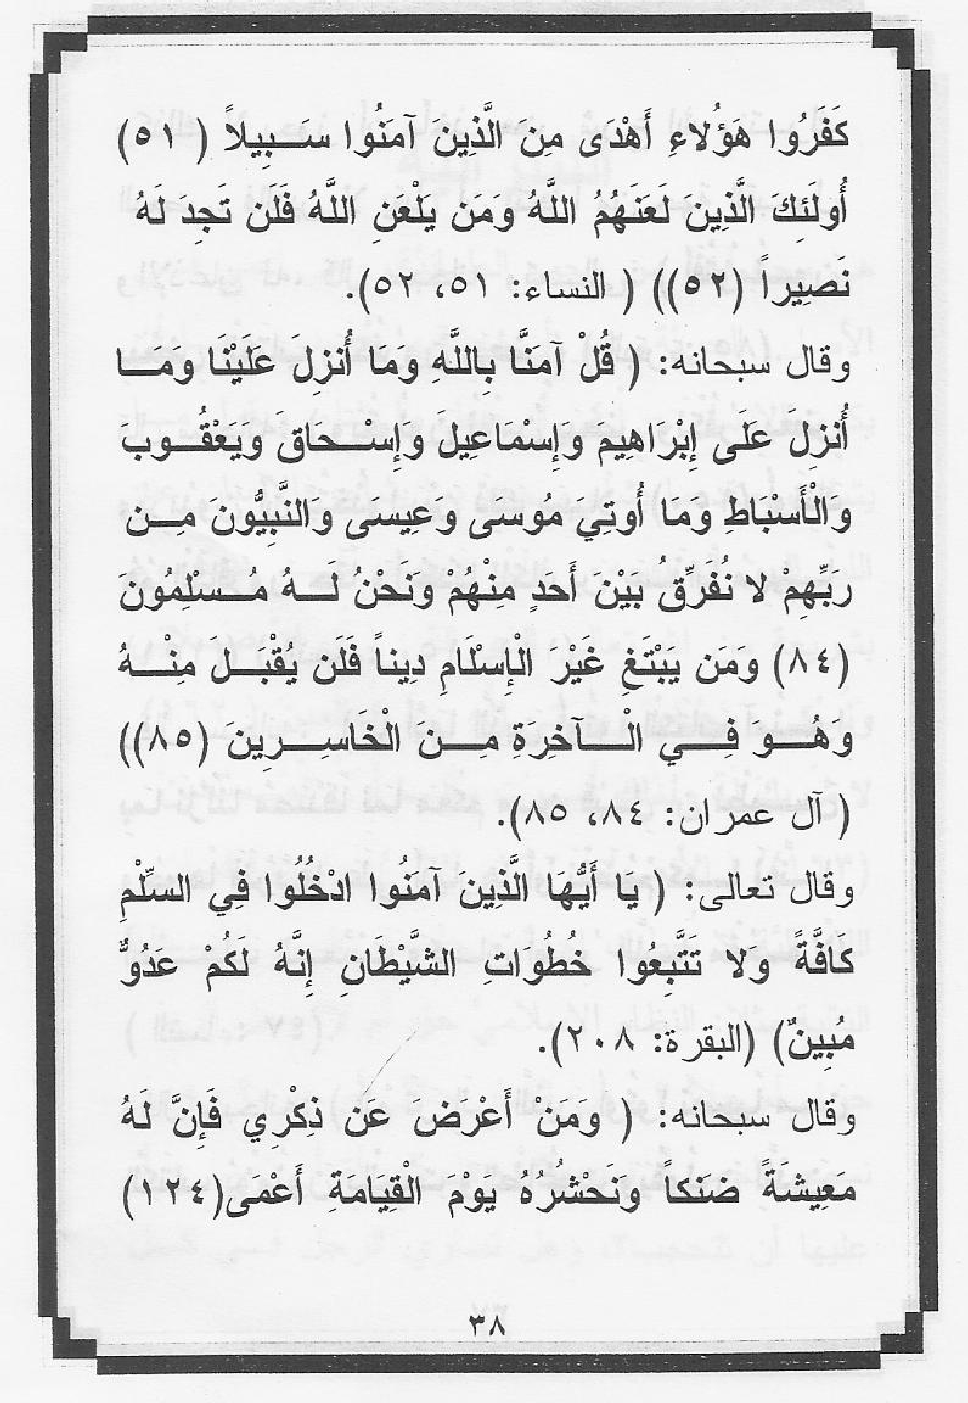 كَفَرُوا هَؤُلاءِ أَهْدَى مِنَ الَّذِينَ آمَنُوا سَــبِيلاً ( ٥١)
أُولَئِكَ الَّذِينَ لَعَنَهُمُ اللَّهُ وَمَن يَلْعَنِ اللَّهُ فَلَن تَجِدَ لَهُ
نَصِيراً (٥٢)) ( النساء: ٥١، ٥٢).
وقال سبحانه: ( قُلْ آمَنَّا بِاللَّهِ وَمَا أُنزِلَ عَلَيْنَا وَمَــا
أُنزِلَ عَلَى إِبْرَاهِيم وَإِسْمَاعِيلَ وَإِسْــحَاقَ وَيَعْقُــوبَ
وَالْأَسْبَاطِ وَمَا أُوتِيَ مُوسَى وَعِيسَى وَالنَّبِيُّونَ مِــن
رَبِّهِمْ لا نُفَرِّقُ بَيْنَ أَحَدٍ مِنْهُمْ وَنَحْنُ لَــهُ مُــسْلِمُونَ
(٨٤) وَمَن يَبْتَغِ غَيْرَ الْإِسْلَامِ دِيناً فَلَن يُقْبَــلَ مِنْــهُ
وَهُــوَ فِــي الْــآخِرَةِ مِــنَ الْخَاسِــرِينَ (٨٥))
( آل عمران: ٨٤، ٨٥).
وقال تعالى: ( يَا أَيُّهَا الَّذِينَ آمَنُوا ادْخُلُوا فِي السِّلْمِ
كَافَّةً وَلا تَتَّبِعُوا خُطُوَاتِ الشَّيْطَانِ إِنَّهُ لَكُمْ عَدُوٌّ
مُبِينٌ) (البقرة: ٢٠٨).
وقال سبحانه: ( وَمَنْ أَعْرَضَ عَن ذِكْرِي فَإِنَّ لَهُ
مَعِيشَةً ضَنكاً وَنَحْشُرُهُ يَوْمَ الْقِيَامَةِ أَعْمَى(١٢٤)
٣٨